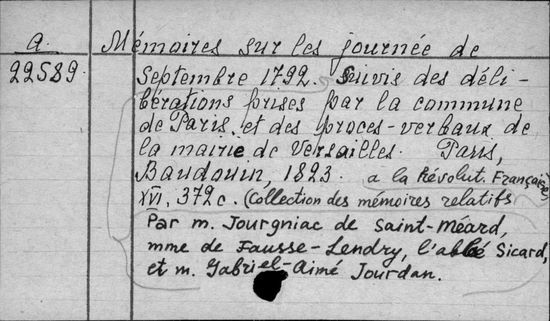 a. Mémoires sur les journée de
22589. Septembre 1792. Suivis des déli-
bérations prises par la commune
de Paris, et des proces-verbaux de
la mairie de Versailles. Paris,
Baudouin, 1823. a la Révolut. Française
XVI, 372 c. (Collection des mémoires relatifs
Par m. Jourgniac de Saint-Méard,
mme de Fausse-Lendry, l'abbé Sicard,
et m. Gabriel-Aimé Jourdan.